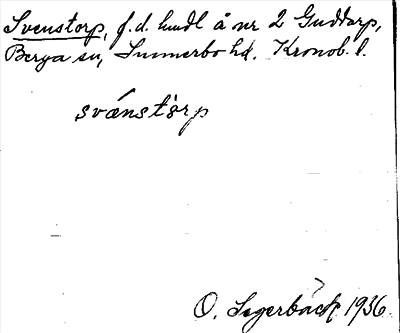 Svenstorp, f.d. hmdl å nr 2 Guddarp,
Berga sn, Sunnerbo hd. Kronob. l.
svánstòrp
O. Segerbäck 1936.